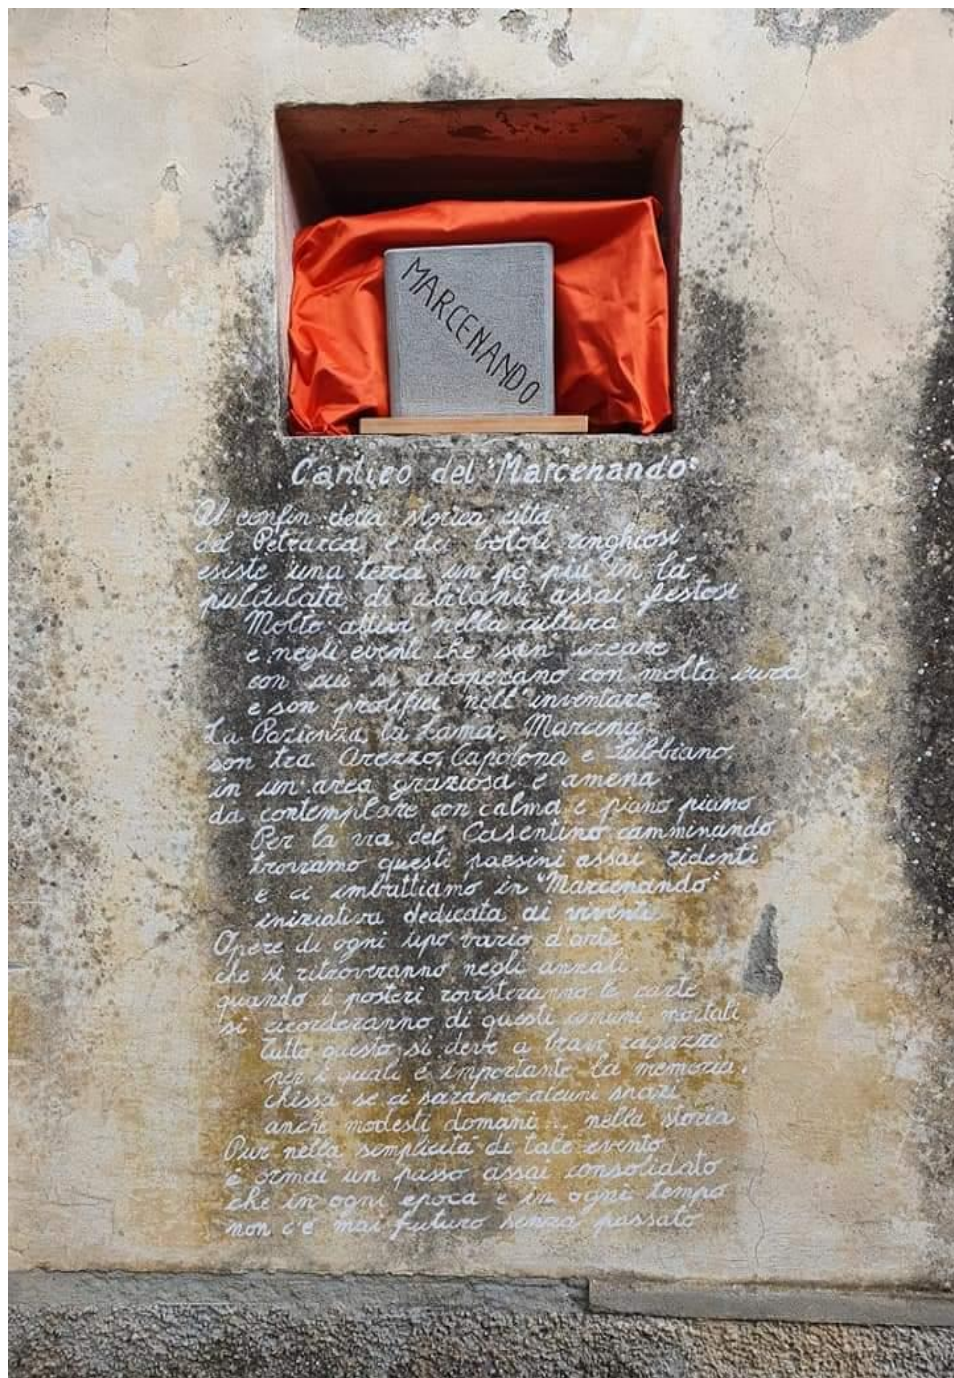 MARCENANDO
Cantico del "Marcenando"
Al confin della storica città
del Petrarca e dei botoli ringhiosi
esiste una terra un po più in la
pullulata di abitanti assai festosi
Molto attivi nella cultura
e negli eventi che san creare
con cui si adoperano con molta cura
e son prolifici nell'inventare
La Pazienza, la Lama, Marcena
son tra Arezzo, Capolona e Subbiano,
in un'area graziosa e amena
da contemplare con calma e piano piano
Per la via del Casentino camminando
troviamo questi paesini assai ridenti
e ci imbattiamo in "Marcenando"
iniziativa dedicata ai viventi
Opere di ogni tipo vario d'arte
che si ritroveranno negli annali
quando i posteri rovisteranno le carte
si ricorderanno di questi comuni mortali
Tutto questo si deve a bravi ragazzi
per i quali è importante la memoria.
Chissà se ci saranno alcuni spazi
anche modesti domani... nella storia
Pur nella semplicità di tale evento
è ormai un passo assai consolidato
che in ogni epoca e in ogni tempo
non c'è mai futuro senza passato